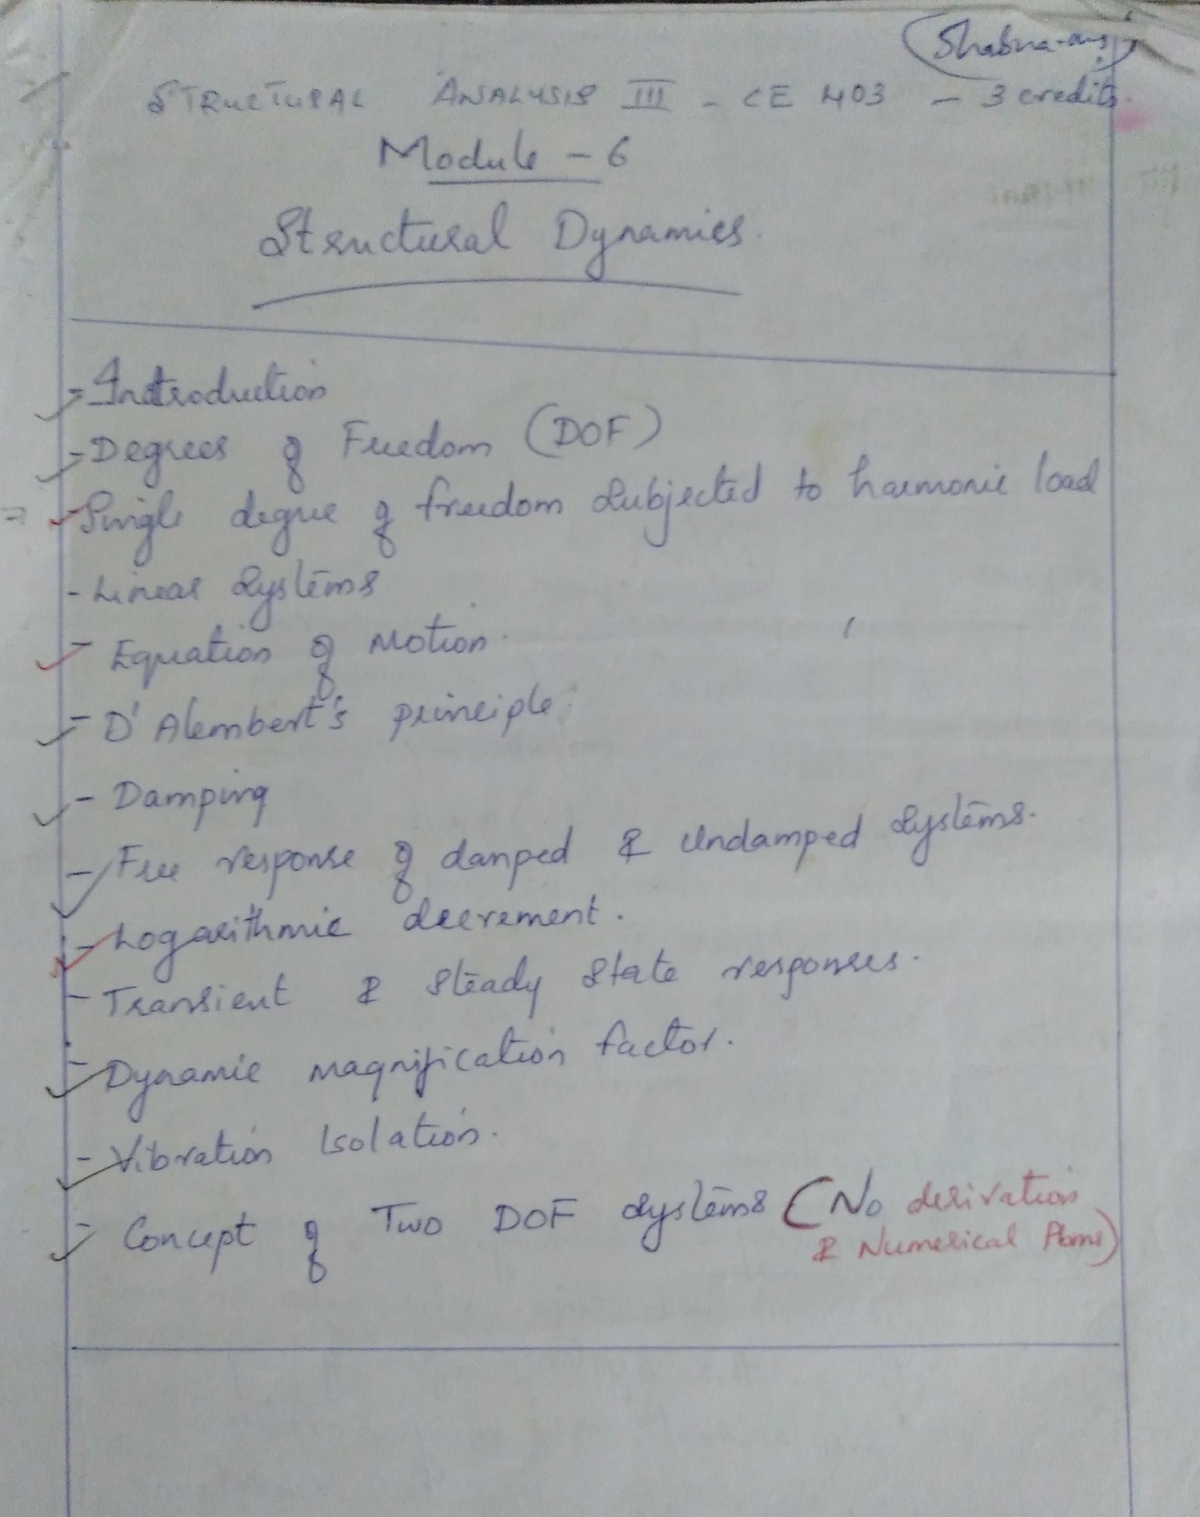 STRUCTURAL ANALYSIS III - CE 403 - 3 credits.
Module - 6
Structural Dynamics.
- Introduction
- Degrees of Freedom (DOF)
- Single degree of freedom subjected to harmonic load
- Linear systems
- Equation of Motion.
- D'Alembert's principle
- Damping
- Free response of damped & Undamped systems.
- Logarithmic decrement.
- Transient & Steady State responses.
- Dynamic magnification factor.
- Vibration Isolation.
- Concept of Two DOF systems (No derivation
& Numerical Pbms)